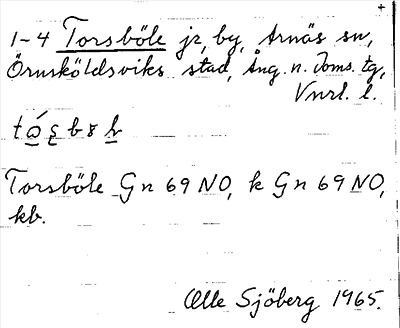 +
1-4 Torsböle jr, by, Arnäs sn,
Örnsköldsviks stad, Ång. n. Doms. tg,
Vnrl. l.
Torsböle Gn 69 NO, k Gn 69 NO,
kb.
Olle Sjöberg 1965.